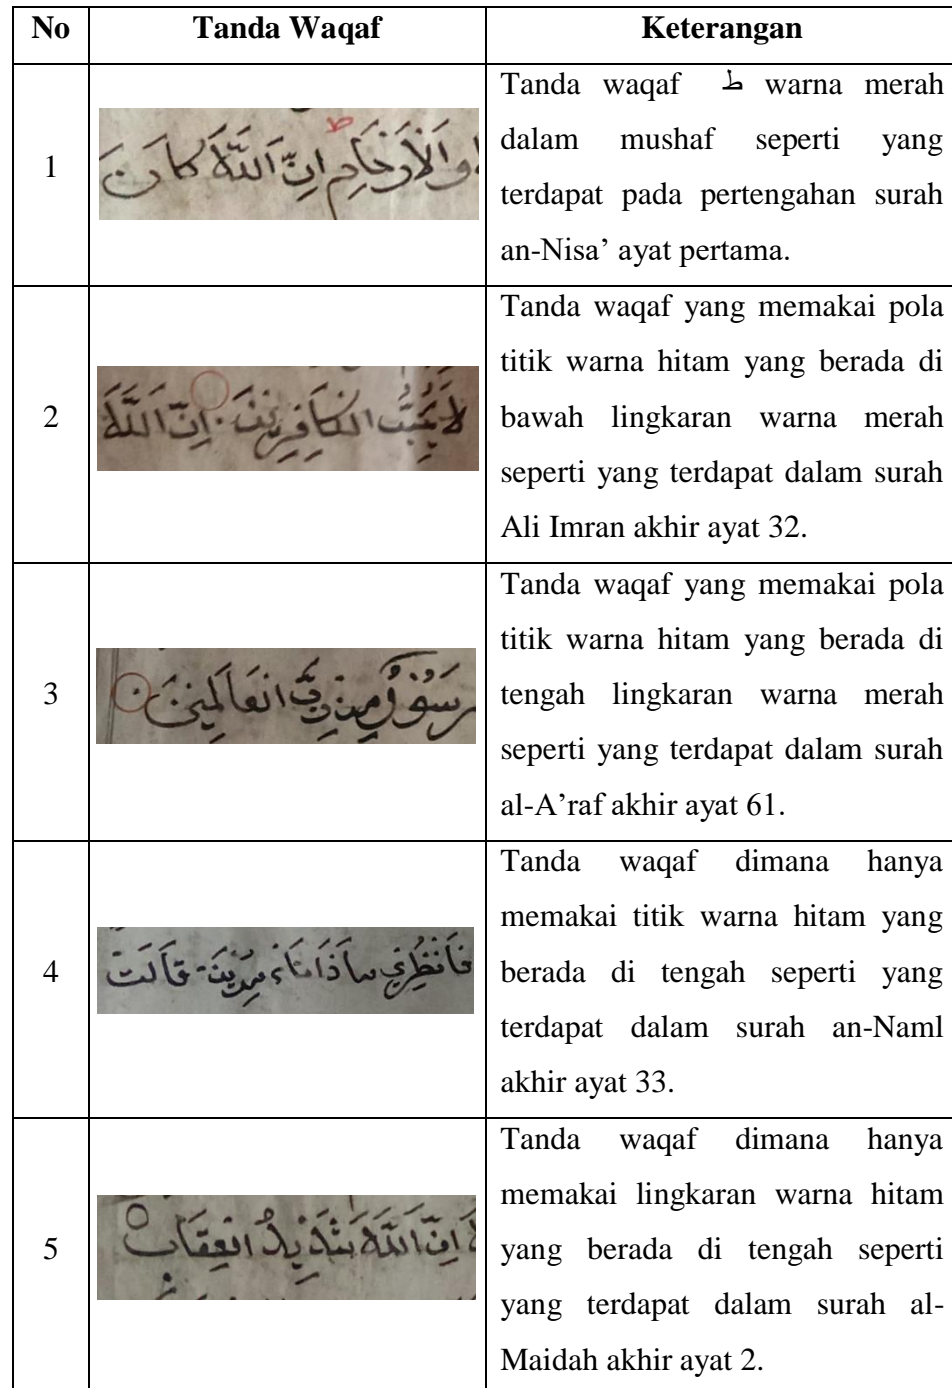 No Tanda Waqaf Keterangan
Tanda waqaf ط warna merah
dalam mushaf seperti yang
1
terdapat pada pertengahan surah
an-Nisa’ ayat pertama.
والأرحام ط ان الله كان
Tanda waqaf yang memakai pola
titik warna hitam yang berada di
2
bawah lingkaran warna merah
seperti yang terdapat dalam surah
Ali Imran akhir ayat 32.
لا يحب الكافرين ان الله
Tanda waqaf yang memakai pola
titik warna hitam yang berada di
3
tengah lingkaran warna merah
seperti yang terdapat dalam surah
al-A’raf akhir ayat 61.
رسول من رب العالمين
Tanda waqaf dimana hanya
memakai titik warna hitam yang
4
berada di tengah seperti yang
terdapat dalam surah an-Naml
akhir ayat 33.
فانظري ماذا تأمرين قالت
Tanda waqaf dimana hanya
memakai lingkaran warna hitam
5
yang berada di tengah seperti
yang terdapat dalam surah al-
Maidah akhir ayat 2.
ان الله شديد العقاب